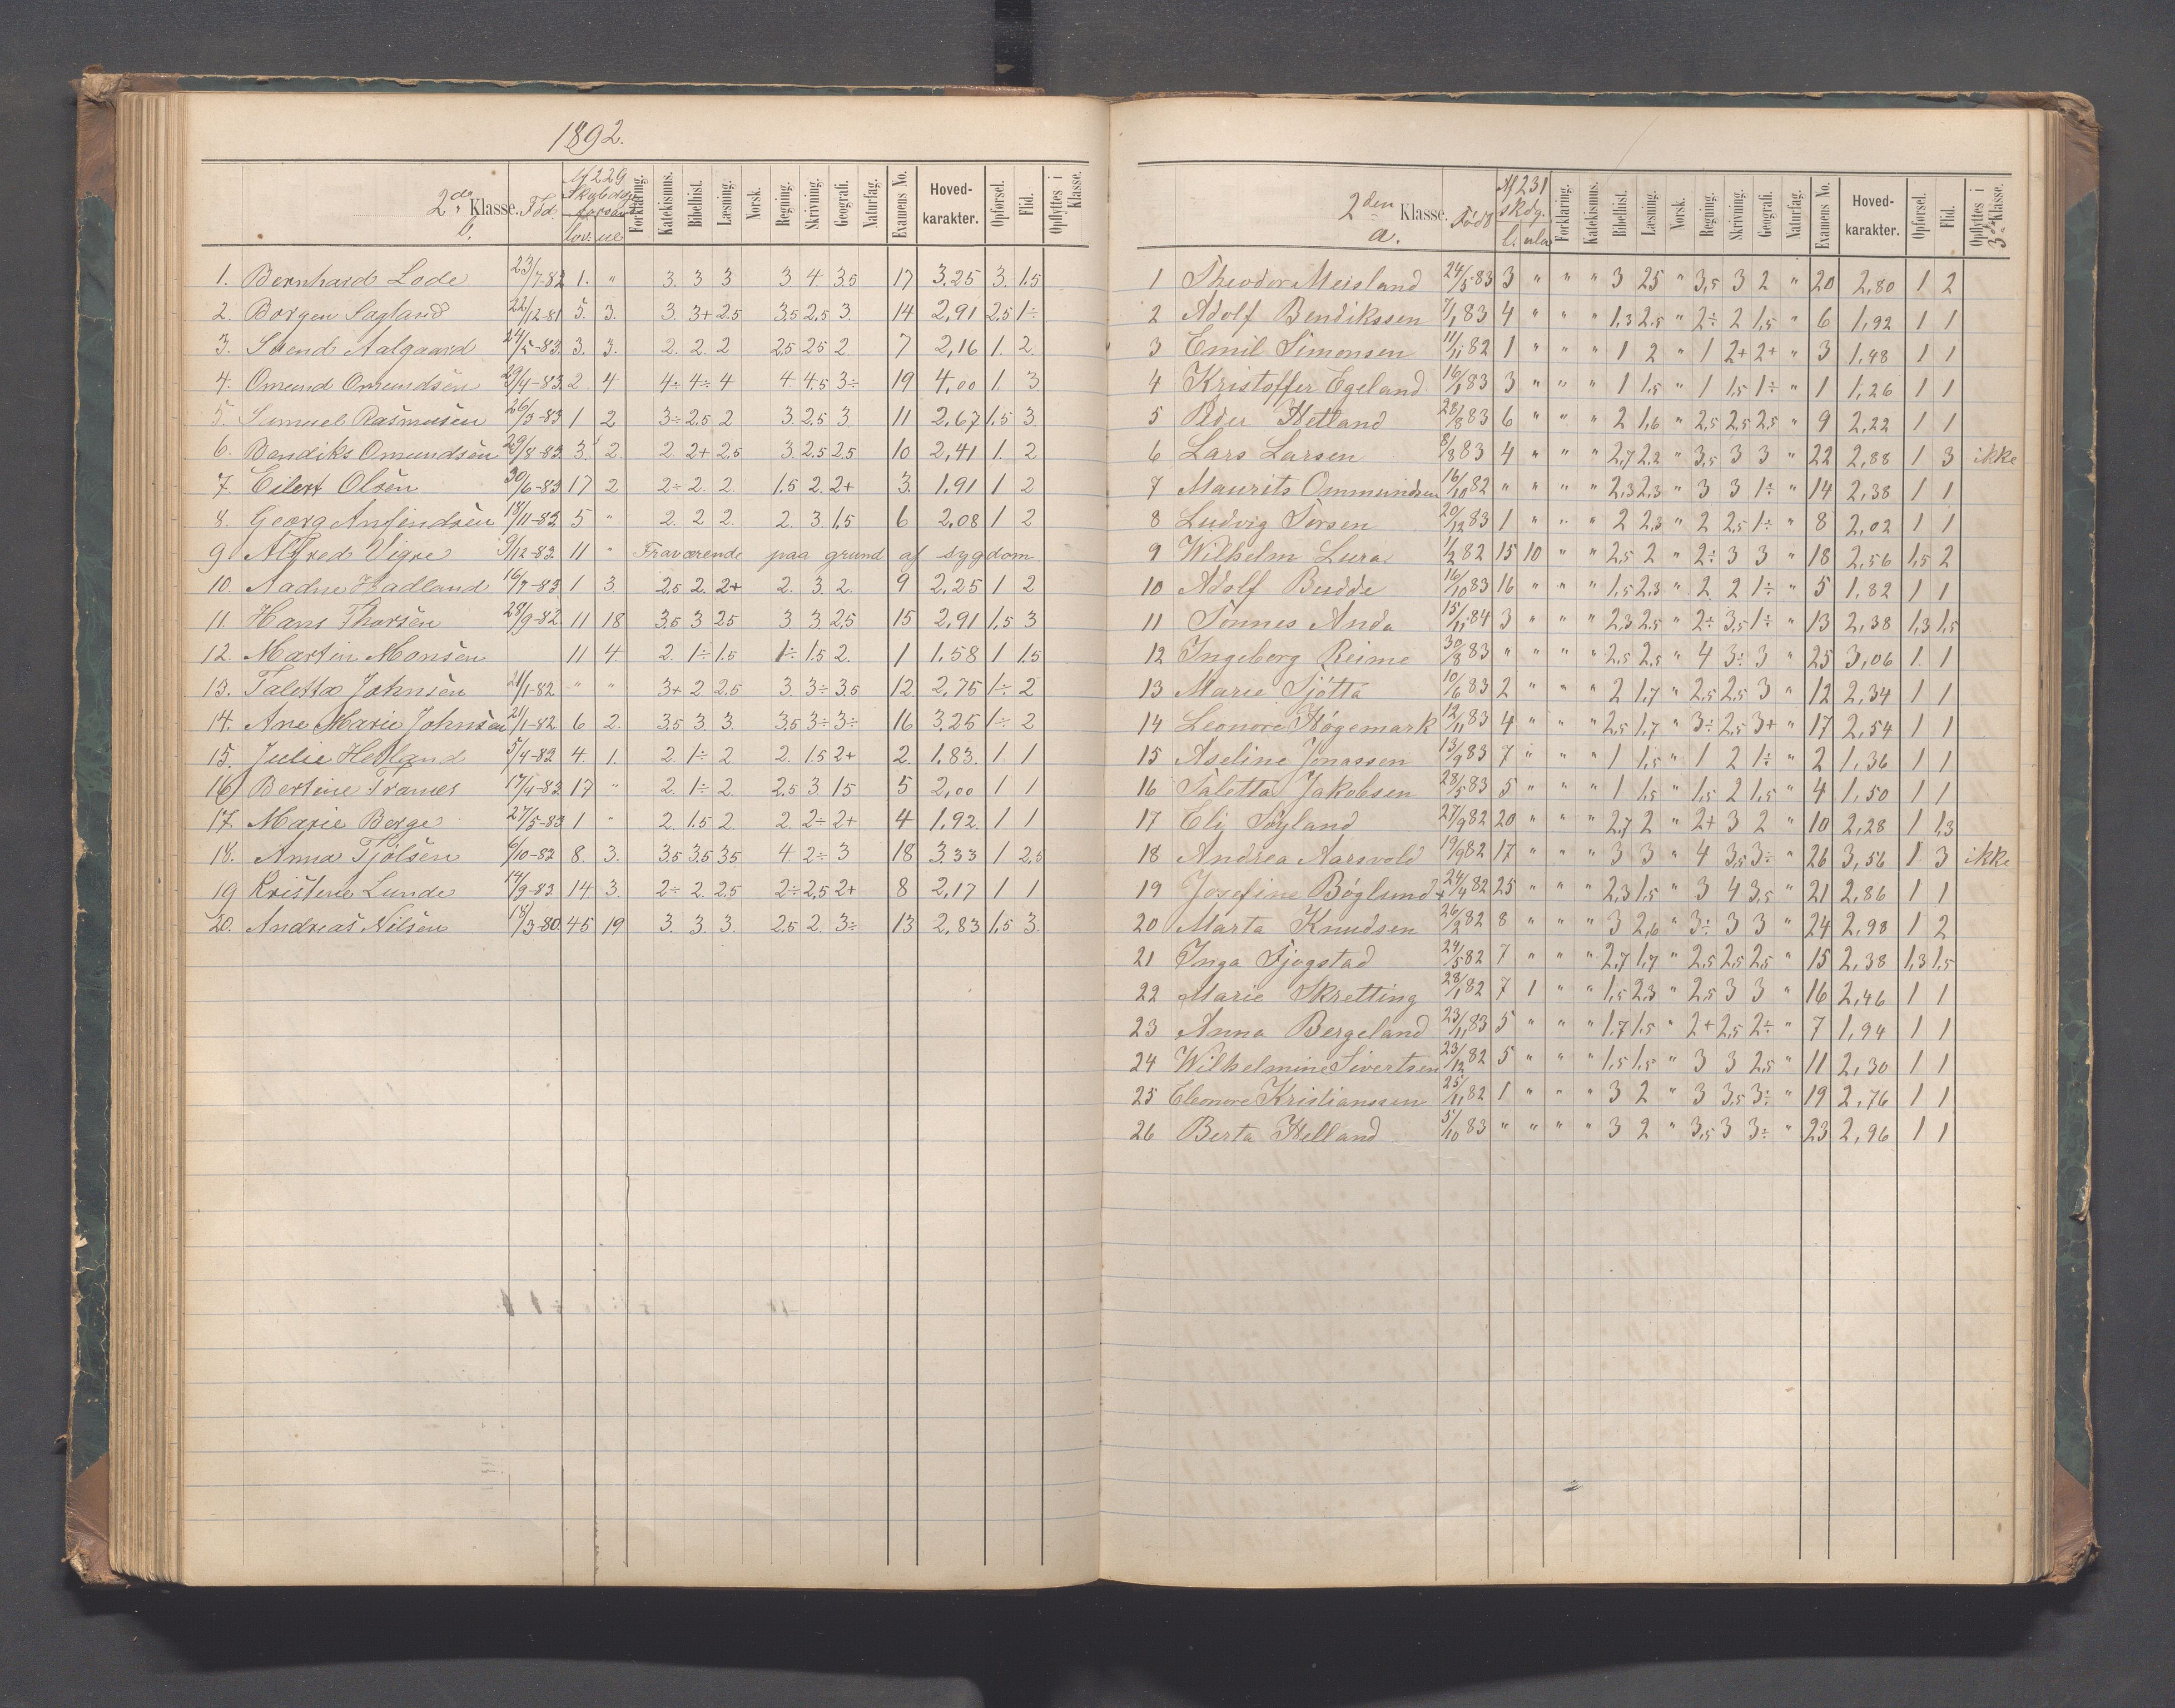 1892.
2de Klasse. Fød. Af 229 Skoledage forsømt lov. ul. Forklaring. Katekismus. Bibelhist. Læsning. Norsk. Regning. Skrivning. Geografi. Naturfag. Examens No. Hoved-karakter. Opførsel. Flid. Opflyttes i Klasse.
b.
1. Bernhard Lode 23/7-82 1. " 3. 3 3 3 4 3.5 17 3,25 3. 1.5
2. Borgen Sagland 22/12-81 5. 3. 3. 3+ 2.5 3.5 2,5 3. 14 2,91 2,5 1÷
3. Svend Aalgaard 24/5-83. 3. 3. 2. 2. 2 2.5 2.5 2. 7 2,16 1. 2.
4. Omund Omundsen 29/4-83 2. 4 4÷ 4÷ 4 4. 4.5 3÷ 19 4,00 1. 3.
5. Samuel Rasmusen 26/3-83 1 2 3÷ 2.5 2 3. 2.5 3. 11 2,67 1,5 3.
6. Bendiks Omundsen 29/8-83. 3. 2. 2. 2+ 2.5 3. 2.5 2.5 10 2,41 1. 2
7. Eilert Olsen 30/6-83 17 2 2÷ 2. 2. 1.5 2. 2+ 3. 1.91 1 2
8. Georg Anfindsen 18/11-82 5 " 2. 2. 2. 2. 3. 1,5 6 2,08 1 2
9 Alfred Vigre 9/12-82 11 " Fraværende paa grund af sygdom
10. Aadne Hadland 16/7-83 1 3. 2.5 2. 2+ 2. 3. 2. 9 2,25 1 2
11. Hans Thorsen 28/9-82. 11 18 3.5 3 2.5 3 3 2,5 15 2,91 1,5 3
12. Martin Monsen 11 4. 2. 1÷ 1.5 1÷ 1.5 2. 1 1.58 1 1.5
13. Taletta Johnsen 21/1-82 " " 3+ 2. 2.5 3. 3÷ 3.5 12. 2,75 1÷ 2
14. Ane Marie Johnsen 21/1-82 6 2. 3.5 3. 3. 3.5 3÷ 3÷ 16 3,25 1÷ 2
15. Julie Hetland 5/4-82 4. 1. 2. 1÷ 2. 2. 1.5 2+ 2. 1,83. 1 1
16 Bertine Tranes 17/4-83 17 " 2. 1÷ 2. 2.5 3. 1.5 5 2,00 1 1
17. Marie Berge 27/5-83 1 " 2. 1.5 2. 2. 2÷ 2+ 4 1,92. 1 1
18. Anna Tjølsen 6/10-82 8. 3. 3.5 3.5 3.5 4. 2÷ 3 18 3.33 1 2,5
19 Kristene Lunde 14/9-83 14. 3. 2÷ 2. 2.5 2÷ 2,5 2+ 8 2,17 1 1
20. Andreas Nilsen 14/3-80. 45 19 3. 3. 3. 2.5 2. 3÷ 13 2,83 1,5 3.
2den Klasse. Født Af 231 skdg. l. ulo Forklaring. Katekismus. Bibelhist. Læsning. Norsk. Regning. Skrivning. Geografi. Naturfag. Examens No. Hoved-karakter. Opførsel. Flid. Opflyttes i 3die Klasse.
a.
1 Theodor Meisland 24/5 83 3 " " " 3 2,5 " 3,5 3 2 " 20 2,80 1 2
2 Adolf Bendikssen 7/1 83 4 " " " 1,3 2,5 " 2÷ 2 1,5 " 6 1,92 1 1
3 Emil Simonsen 11/11 82 1 " " " 1 2 " 1 2+ 2+ " 3 1,48 1 1
4 Kristoffer Egeland 16/1 83 3 " " " 1 1,5 " 1 1,5 1÷ " 1 1,26 1 1
5 Peder Hetland 28/8 83 6 " " " 2 1,6 " 2,5 2,5 2,5 " 9 2,22 1 1
6 Lars Larsen 8/8 83 4 " " " 2,7 2,2 " 3,5 3 3 " 22 2,88 1 3 ikke
7 Maurits Ommundsen 16/10 82 " " " " 2,3 2,3 " 3 3 1÷ " 14 2,38 1 1
8 Ludvig Torsen 20/12 83 1 " " " 2 2,3 " 2 2,5 1÷ " 8 2,02 1 1
9 Wilhelm Lura 1/2 82 15 10 " " 2,5 2 " 2÷ 3 3 " 18 2,56 1,5 2
10 Adolf Budde 16/10 83 16 " " " 1,5 2,3 " 2 2 1÷ " 5 1,82 1 1
11 Tønnes Anda 15/11 84 3 " " " 2,3 2,5 " 2÷ 3,5 1÷ " 13 2,38 1,3 1,5
12 Ingeborg Reime 30/8 83 " " " " 2,5 2,5 " 4 3÷ 3 " 25 3,06 1 1
13 Marie Sjøtta 10/6 83 2 " " " 2 1,7 " 2,5 2,5 3 " 12 2,34 1 1
14 Leonore Høgemark 12/11 83 4 " " " 2,5 1,7 " 3÷ 2,5 3+ " 17 2,54 1 1
15 Aseline Jonassen 13/9 83 7 " " " 1 1,5 " 1 2 1÷ " 2 1,36 1 1
16 Taletta Jakobsen 28/5 83 5 " " " 1 1,5 " 1,5 2 1,5 " 4 1,50 1 1
17 Eli Søyland 27/9 82 20 " " " 2,7 2 " 2+ 3 2 " 10 2,28 1 1,3
18 Andrea Aarsvold 19/9 82 17 " " " 3 3 " 4 3,5 3÷ " 26 3,56 1 3 ikke
19 Josefine Bøglund 24/4 82 25 " " " 2,3 1,5 " 3 4 3,5 " 21 2,86 1 1
20 Marta Knudsen 26/2 82 8 " " " 3 2,6 " 3÷ 3 3 " 24 2,98 1 2
21 Inga Fjogstad 24/5 82 7 " " " 2,7 1,7 " 2,5 2,5 2,5 " 15 2,38 1,3 1,5
22 Marie Skretting 28/1 82 7 1 " " 1,5 2,3 " 2,5 3 3 " 16 2,46 1 1
23 Anna Bergeland 23/11 83 5 " " " 1,7 1,5 " 2+ 2,5 2÷ " 7 1,94 1 1
24 Wilhelmine Sivertsen 23/12 82 5 " " " 1,5 1,5 " 3 3 2,5 " 11 2,30 1 1
25 Eleonore Kristianssen 25/11 82 1 " " " 3 2 " 3 3,5 3÷ " 19 2,76 1 1
26 Berta Helland 5/10 83 " " " " 3 2 " 3,5 3 3÷ " 23 2,96 1 1